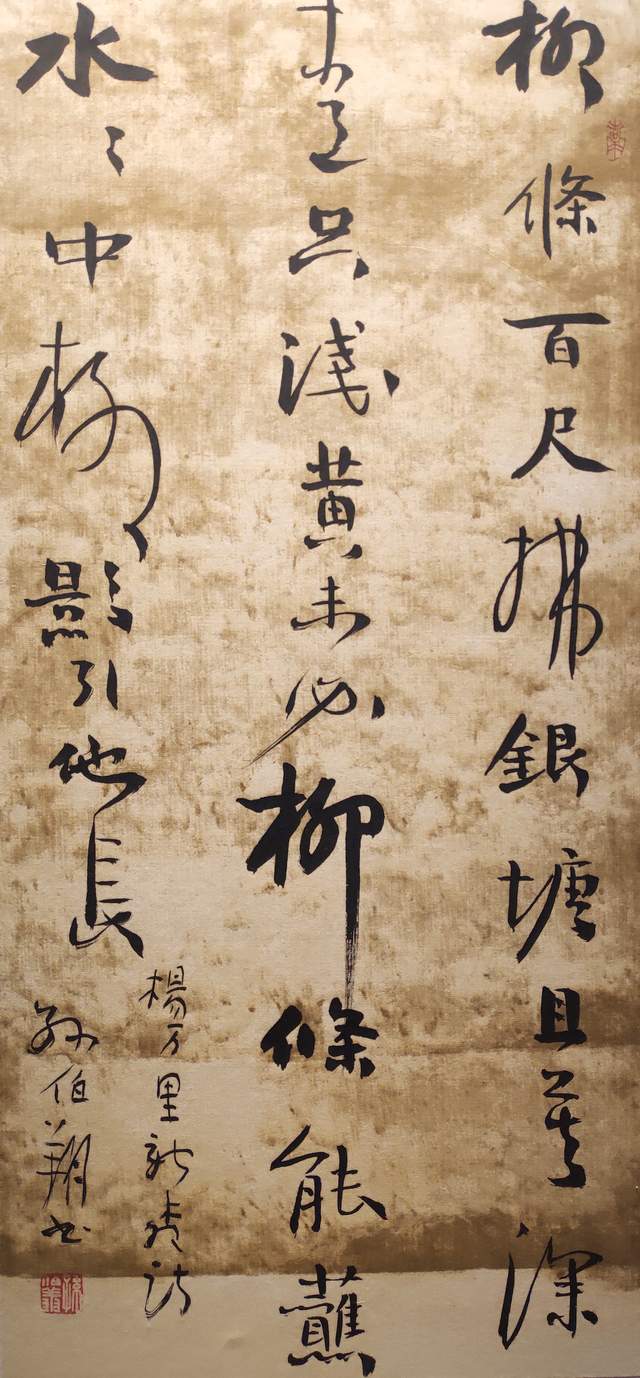 柳條百尺拂銀塘且莫深
青只淺黄未必柳條能蘸
水〻中柳影引他長
楊万里新柳詩
孫伯翔书